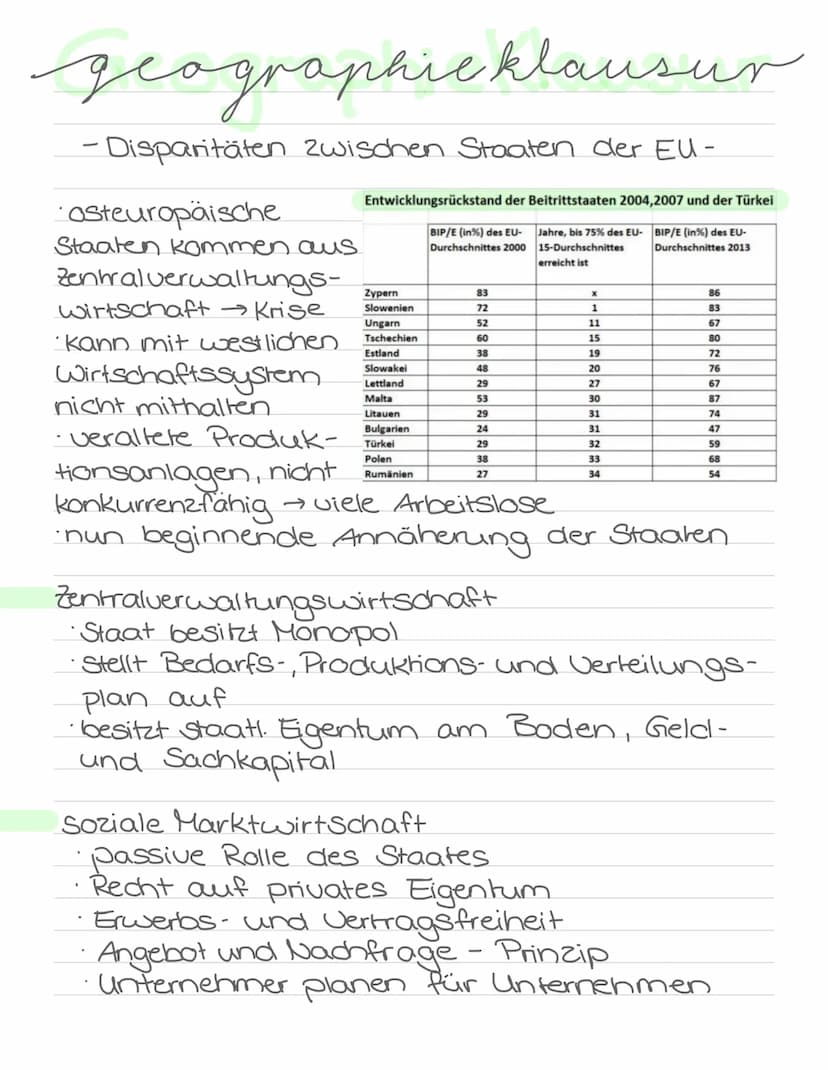 GeographieKlausur
geographieklausur
- Disparitäten zwischen Staaten der EU -
· osteuropäische
Staaten kommen aus
Zentralverwaltungs-
wirtschaft → Krise
· kann mit westlichen
Wirtschaftssystem
nicht mithalten
· veraltete Produk-
tionsanlagen, nicht
konkurrenzfähig → viele Arbeitslose
· nun beginnende Annäherung der Staaten
Entwicklungsrückstand der Beitrittstaaten 2004,2007 und der Türkei
BIP/E (in%) des EU- Jahre, bis 75% des EU- BIP/E (in%) des EU-
Durchschnittes 2000 15-Durchschnittes Durchschnittes 2013
erreicht ist
Zypern 83 x 86
Slowenien 72 1 83
Ungarn 52 11 67
Tschechien 60 15 80
Estland 38 19 72
Slowakei 48 20 76
Lettland 29 27 67
Malta 53 30 87
Litauen 29 31 74
Bulgarien 24 31 47
Türkei 29 32 59
Polen 38 33 68
Rumänien 27 34 54
Zentralverwaltungswirtschaft
· Staat besitzt Monopol
· Stellt Bedarfs-, Produktions- und Verteilungs-
plan auf
· besitzt staatl. Eigentum am Boden, Geld-
und Sachkapital
Soziale Marktwirtschaft
· passive Rolle des Staates
· Recht auf privates Eigentum
· Erwerbs- und Vertragsfreiheit
· Angebot und Nachfrage - Prinzip
· Unternehmer planen für Unternehmen